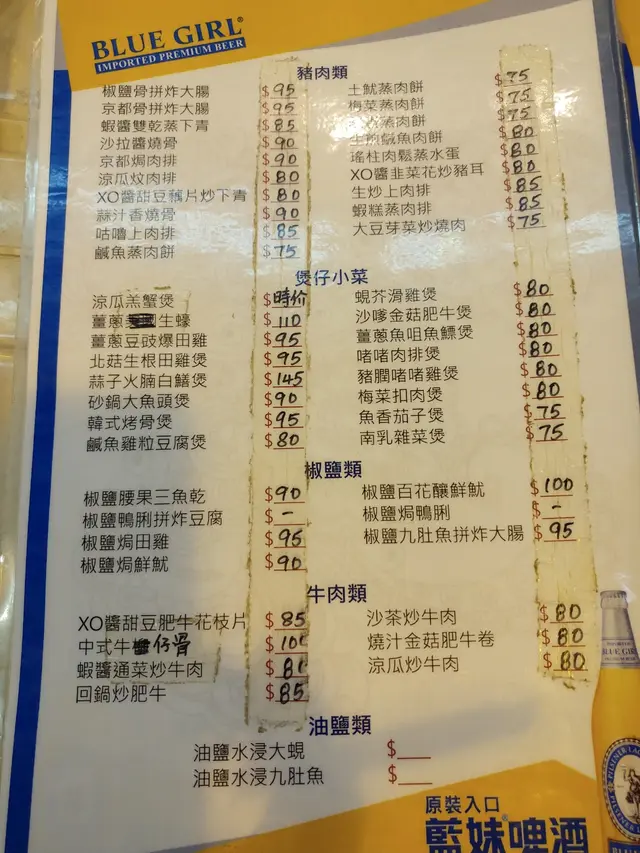 BLUE GIRL®
IMPORTED PREMIUM BEER
豬肉類
椒鹽骨拼炸大腸 $95
京都骨拼炸大腸 $95
蝦醬雙乾蒸下青 $85
沙拉醬燒骨 $90
京都焗肉排 $90
涼瓜炆肉排 $80
XO醬甜豆藕片炒下青 $80
蒜汁香燒骨 $90
咕嚕上肉排 $85
鹹魚蒸肉餅 $75
土魷蒸肉餅 $75
梅菜蒸肉餅 $75
蒸肉餅 $75
生煎鹹魚肉餅 $80
瑤柱肉鬆蒸水蛋 $80
XO醬韭菜花炒豬耳 $80
生炒上肉排 $85
蝦糕蒸肉排 $85
大豆芽菜炒燒肉 $75
煲仔小菜
涼瓜羔蟹煲 $時价
薑蔥生蠔 $110
薑蔥豆豉爆田雞 $95
北菇生根田雞煲 $95
蒜子火腩白鱔煲 $145
砂鍋大魚頭煲 $90
韓式烤骨煲 $95
鹹魚雞粒豆腐煲 $80
蜆芥滑雞煲 $80
沙嗲金菇肥牛煲 $80
薑蔥魚咀魚鰾煲 $80
啫啫肉排煲 $80
豬膶啫啫雞煲 $80
梅菜扣肉煲 $80
魚香茄子煲 $75
南乳雜菜煲 $75
椒鹽類
椒鹽腰果三魚乾 $90
椒鹽鴨脷拼炸豆腐 $-
椒鹽焗田雞 $95
椒鹽焗鮮魷 $90
椒鹽百花釀鮮魷 $100
椒鹽焗鴨脷 $-
椒鹽九肚魚拼炸大腸 $95
牛肉類
XO醬甜豆肥牛花枝片 $85
中式牛仔骨 $100
蝦醬通菜炒牛肉 $80
回鍋炒肥牛 $85
沙茶炒牛肉 $80
燒汁金菇肥牛卷 $80
涼瓜炒牛肉 $80
油鹽類
油鹽水浸大蜆 $
油鹽水浸九肚魚 $
原裝入口
藍妹®啤酒
BLUE GIRL